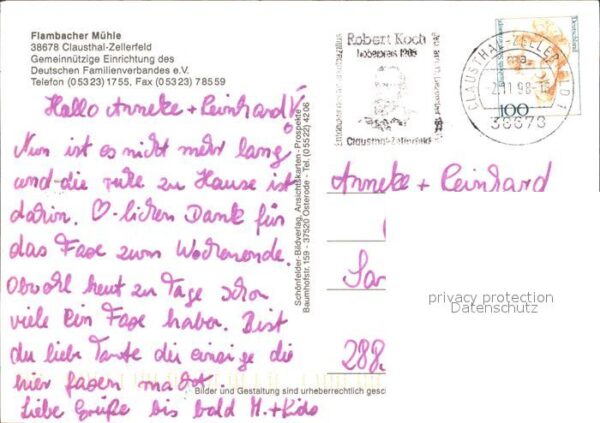 Flambacher Mühle
38678 Clausthal-Zellerfeld
Gemeinnützige Einrichtung des
Deutschen Familienverbandes e.V.
Telefon (05323) 1755, Fax (05323) 78559
Hallo Anneke + Reinhard!
Nun ist es nicht mehr lang
und die ruhe zu Hause ist
dahin. ♡-lichen Dank für
das Faxe zum Wochenende.
Obwohl heut zu Tage schon
viele ein Faxe haben. Bist
du liebe Tante die einzige die
hier faxen macht.
Liebe Grüße bis bald M.+Kids
Schönfelder-Bildverlag, Ansichtskarten - Prospekte
Baumhofstr. 159 - 37520 Osterode - Tel. (05522) 4206
Robert Koch
Nobelpreis 1905
Clausthal-Zellerfeld
CLAUSTHAL-ZELLERFELD 1
-2.11.98-
38678
Deutschland
100
Anneke + Reinhard
288
privacy protection
Datenschutz
Bilder und Gestaltung sind urheberrechtlich gesc